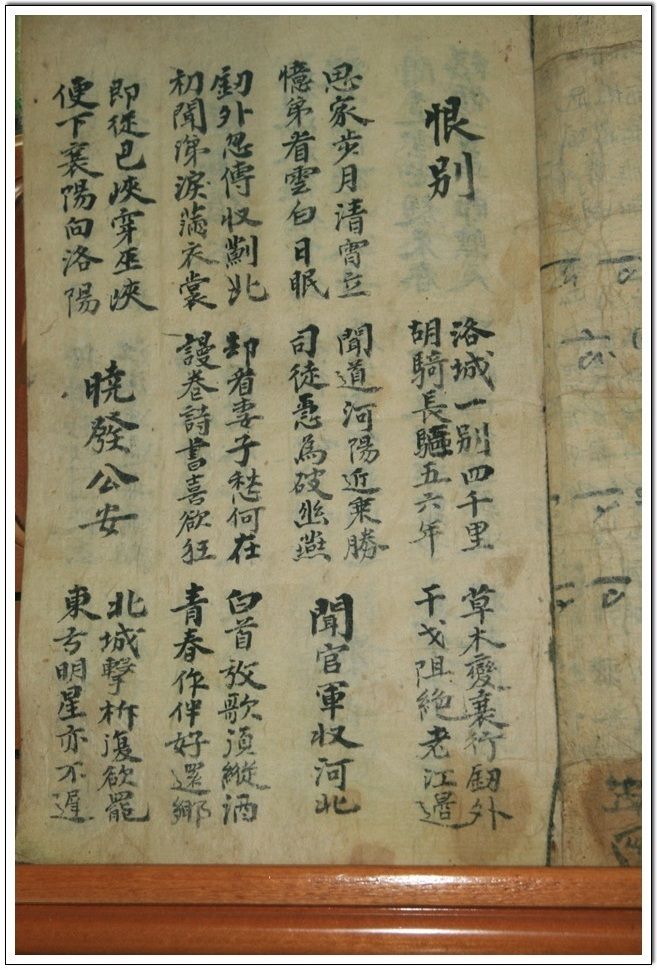 恨别
洛城一别四千里
胡騎長驅五六年
草木變襄行釰外
干戈阻絶老江邊
思家步月清宵立
憶弟看雲白日眠
聞道河陽近乗勝
司徒急為破幽燕
聞官軍収河北
釰外忽傳収薊北
初聞涕淚滿衣裳
却看妻子愁何在
謾卷詩書喜欲狂
白首放歌須縱酒
青春作伴好還鄉
即從巴峽穿巫峽
便下襄陽向洛陽
曉發公安
北城擊柝復欲罷
東方明星亦不遲